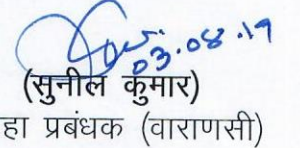 03.08.19
(सुनील कुमार)
हा प्रबंधक (वाराणसी)